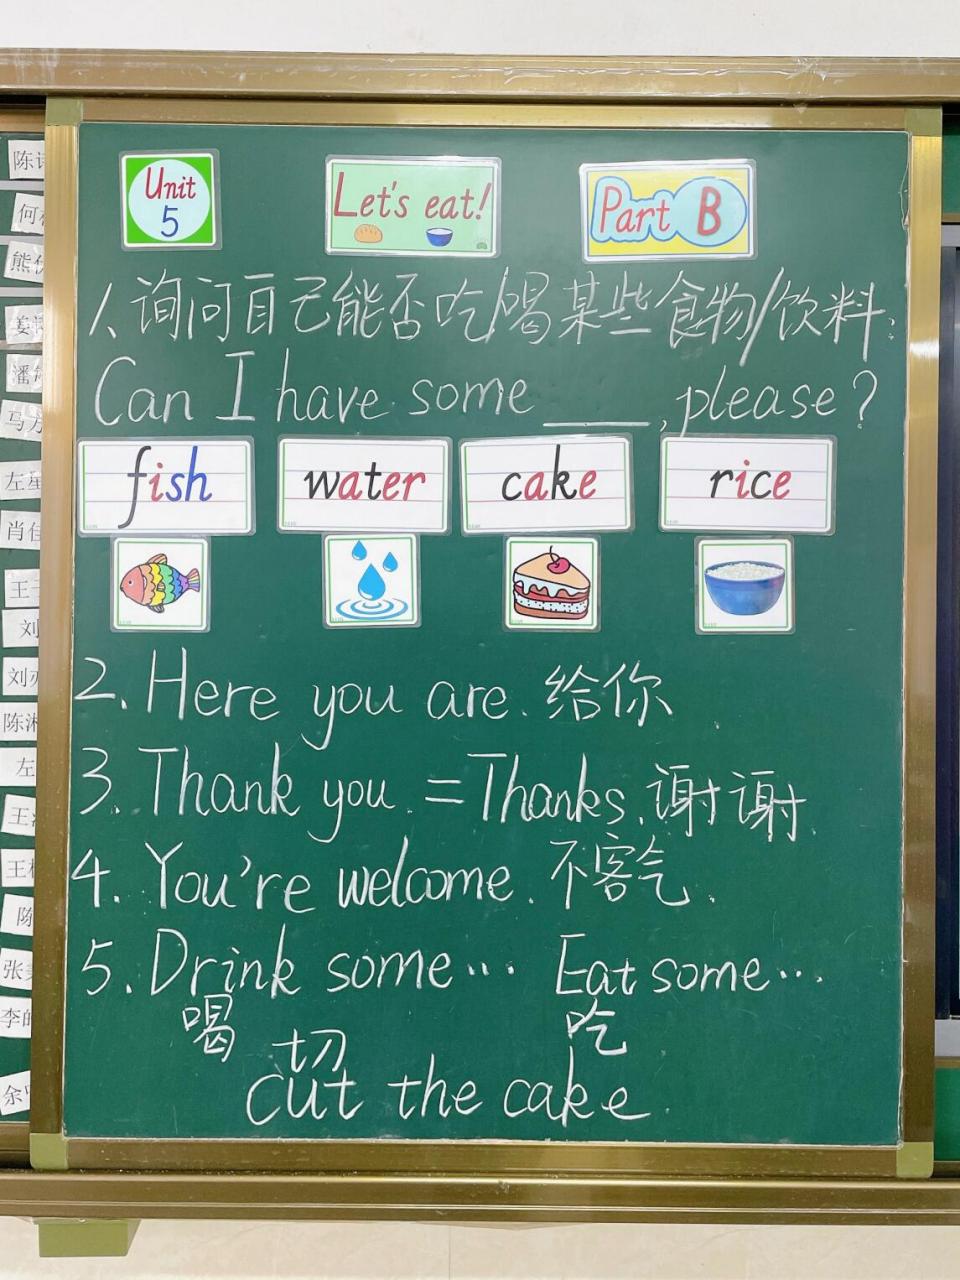 Unit 5
Let's eat!
Part B
1. 询问自己能否吃/喝某些食物/饮料:
Can I have some ____, please?
fish water cake rice
2. Here you are. 给你
3. Thank you. = Thanks. 谢谢.
4. You're welcome. 不客气.
5. Drink some… Eat some…
喝 吃
切
cut the cake.
陈
何
熊
姜
潘
马方
左星
肖佳
王
刘
刘亦
陈湘
左
王
王
陈
张
李
余